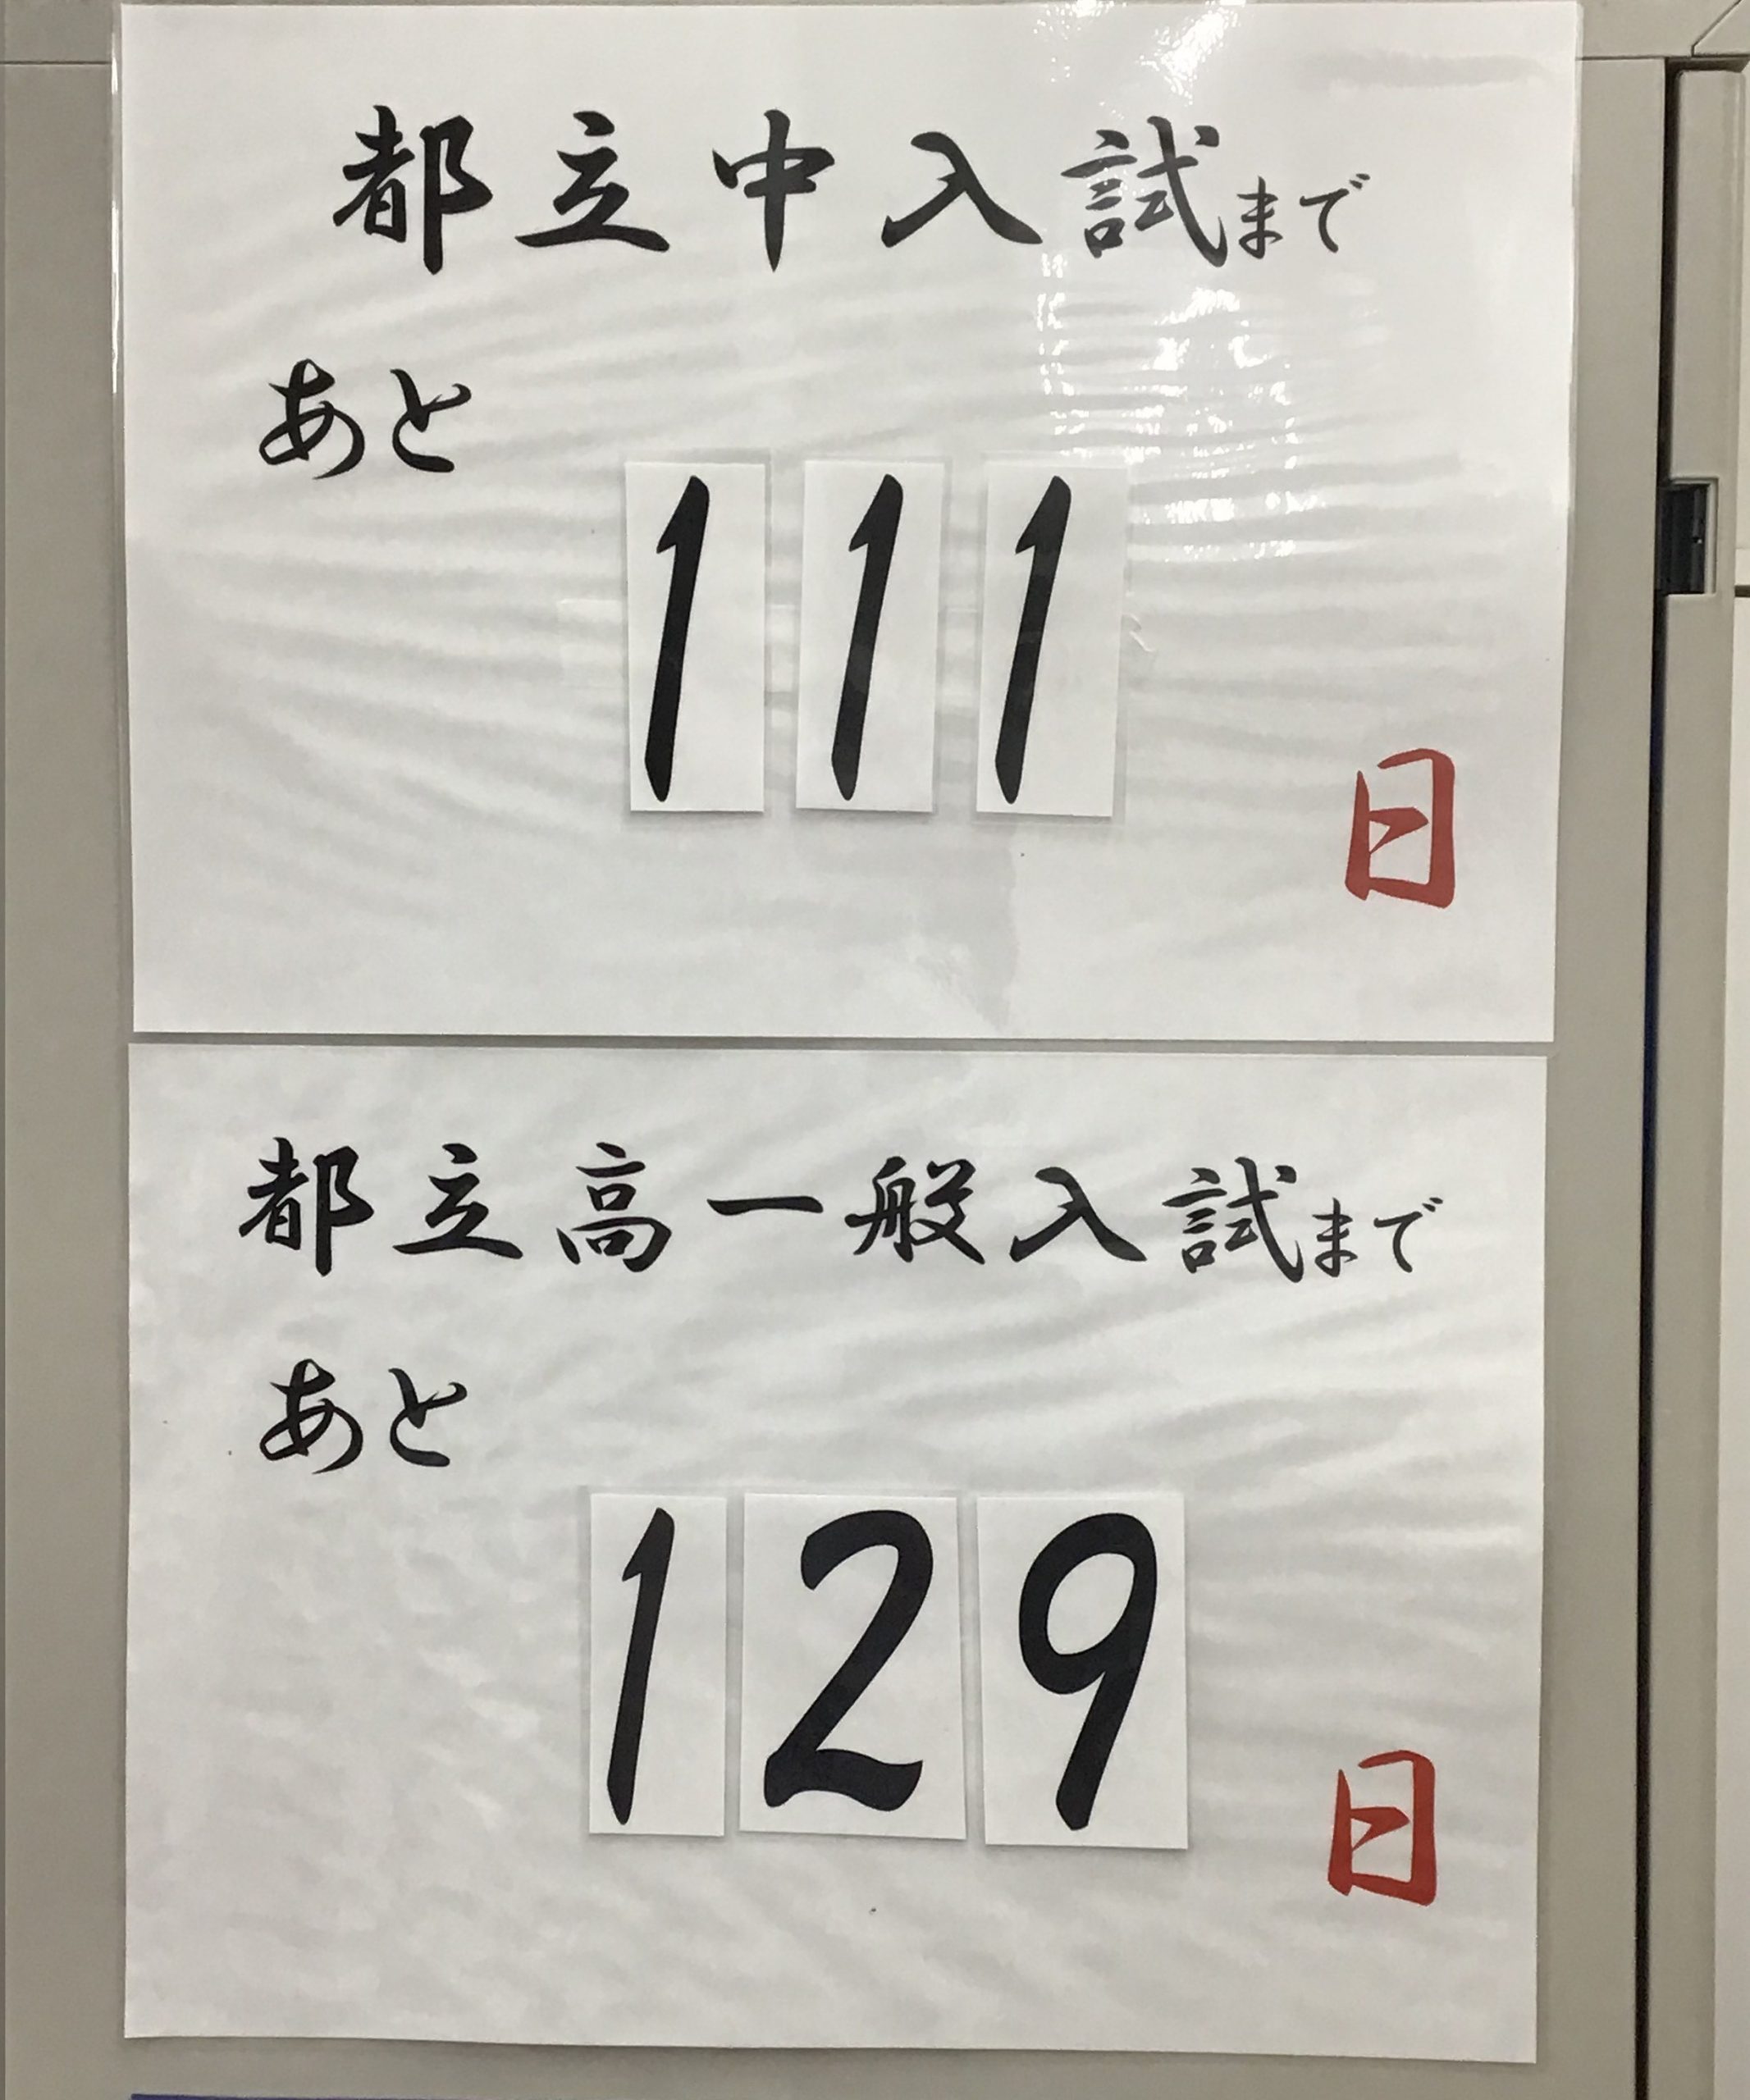 都立中入試まで
あと
111
日
都立高一般入試まで
あと
129
日